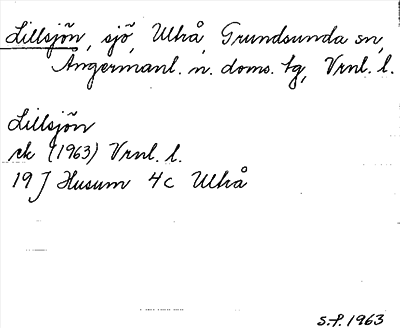 Lillsjön, sjö, Ulvå, Grundsunda sn,
Ångermanl. n. doms. tg, Vrnl. l.
Lillsjön
ek (1963) Vrnl. l.
19 J Husum 4c Ulvå
S.f. 1963